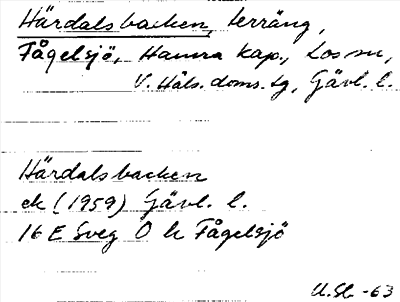 Härdalsbacken, terräng,
Fågelsjö, Hamra kap., Los sn,
V. Häls. doms.tg, Gävl. l.
Härdalsbacken
ek (1959) Gävl. l.
16 E Sveg O h Fågelsjö
U.Sb -63